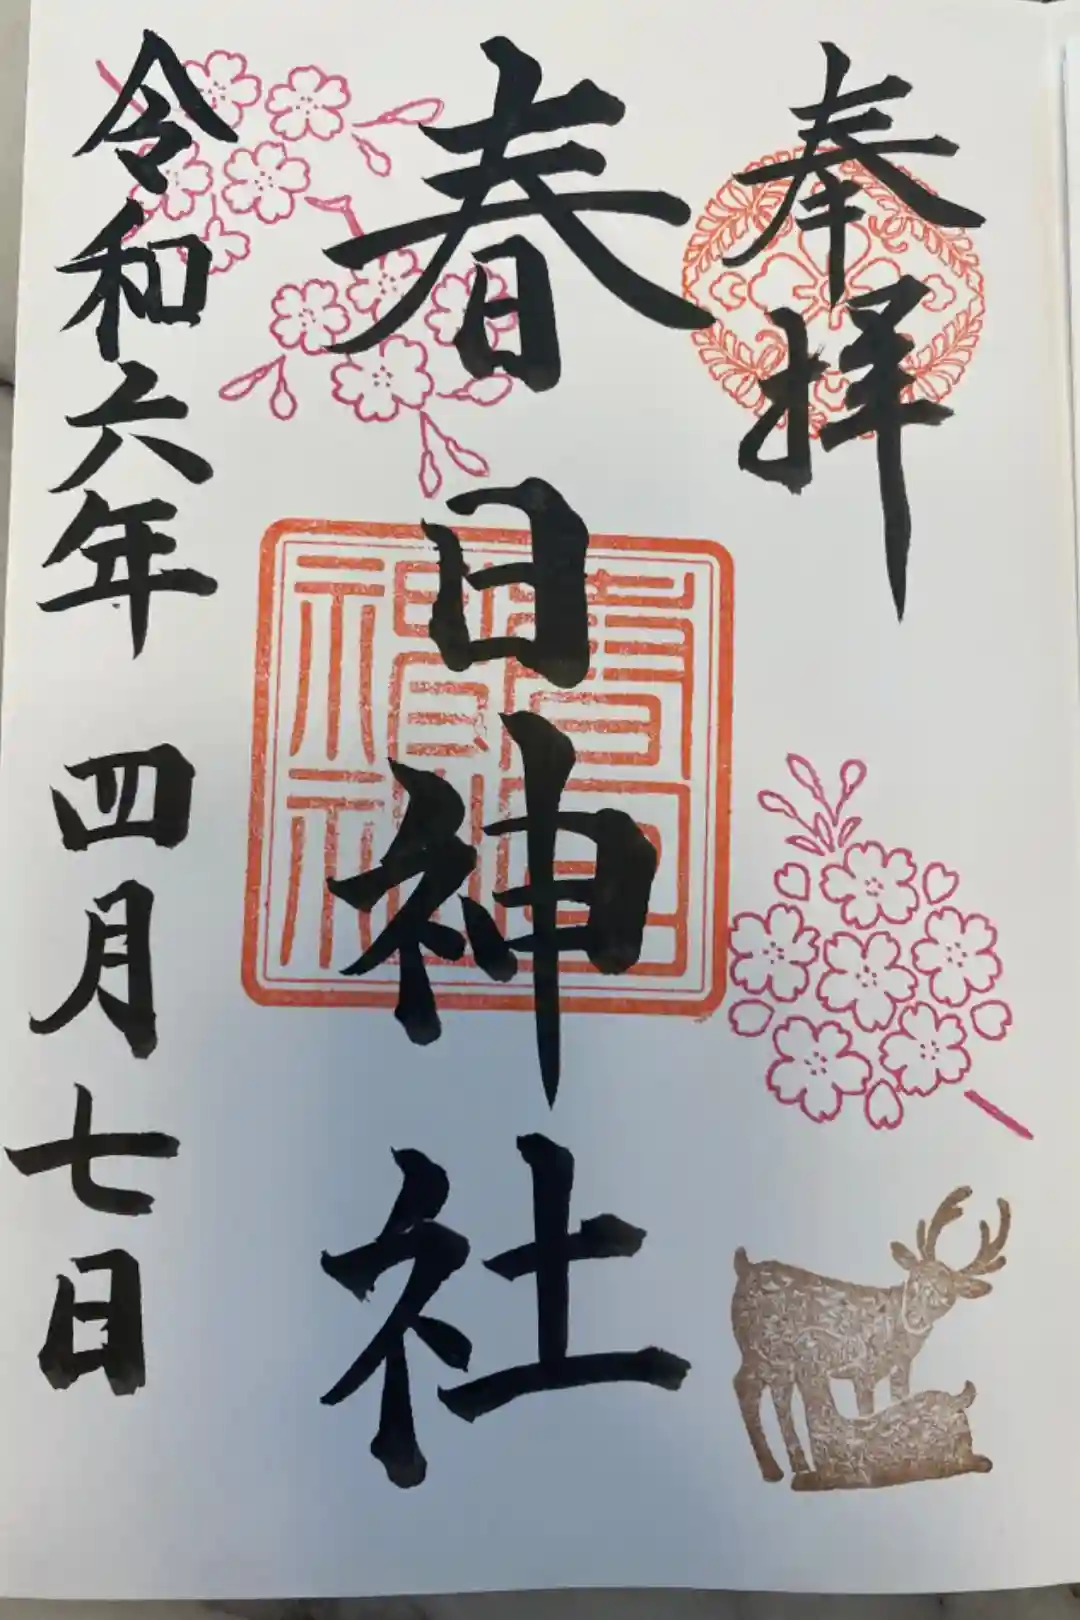 奉拝
春日神社
令和六年 四月七日
春日神社